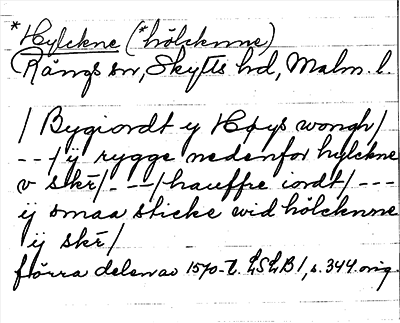 *Hylckne (*hölcknne)
Rängs sn, Skytts hd, Malm. l.
/ Bygiordt y Høys wongh /
-- / ÿ rygge nedenfor hylckne
v skr̄ / - -- / hauffre iordt / ---
ij smaa sticke wid hölcknne
ÿ skr̄ /
förra delen av 1570-t. LSLB 1, s. 344. orig.